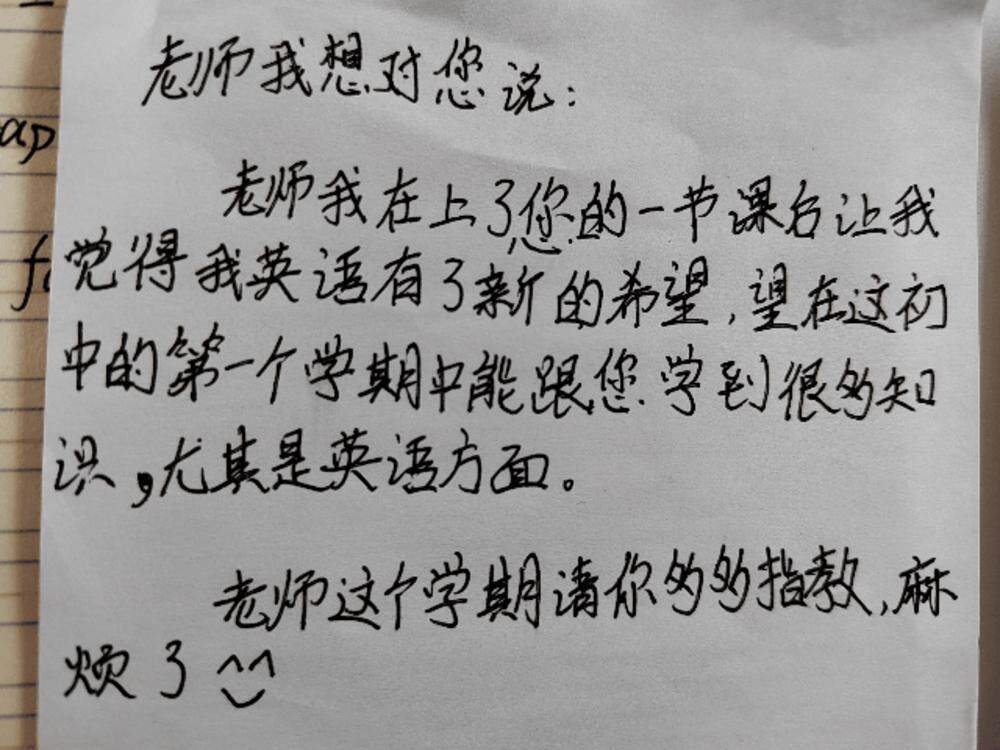 老师我想对您说：
老师我在上了您的一节课后让我
ap
觉得我英语有了新的希望，望在这初
中的第一个学期中能跟您学到很多知
识，尤其是英语方面。
老师这个学期请你多多指教，麻
烦了